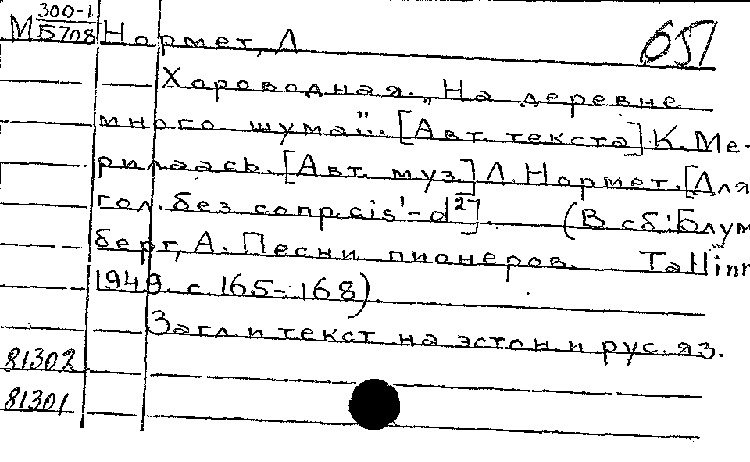 М 300-1/Б708 Нормет, Л 651
Хороводная. „На деревне
много шума". [Авт. текста] К. Ме-
рилаась. [Авт. муз] Л. Нормет. [Для
гол. без сопр. cis¹-d²]. (В сб: Блум
берг, А. Песни пионеров. Tallinn
1949. с. 165-168).
Загл и текст на эстон и рус. яз.
81302
81301